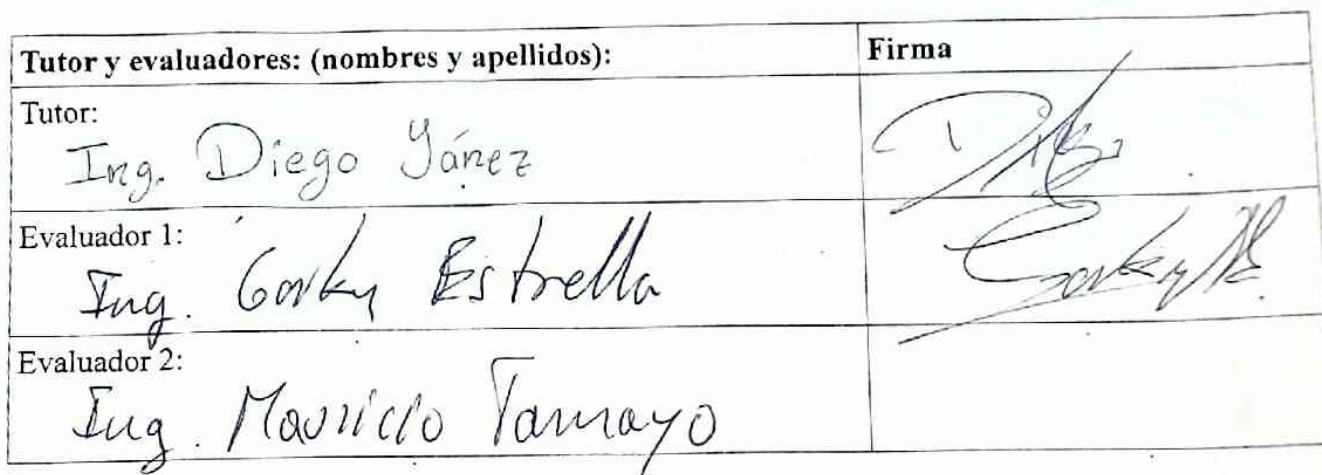 Tutor y evaluadores: (nombres y apellidos):
Firma
Tutor:
Ing. Diego Yánez
Evaluador 1:
Ing. Gorky Estrella
Evaluador 2:
Ing. Mauricio Tamayo